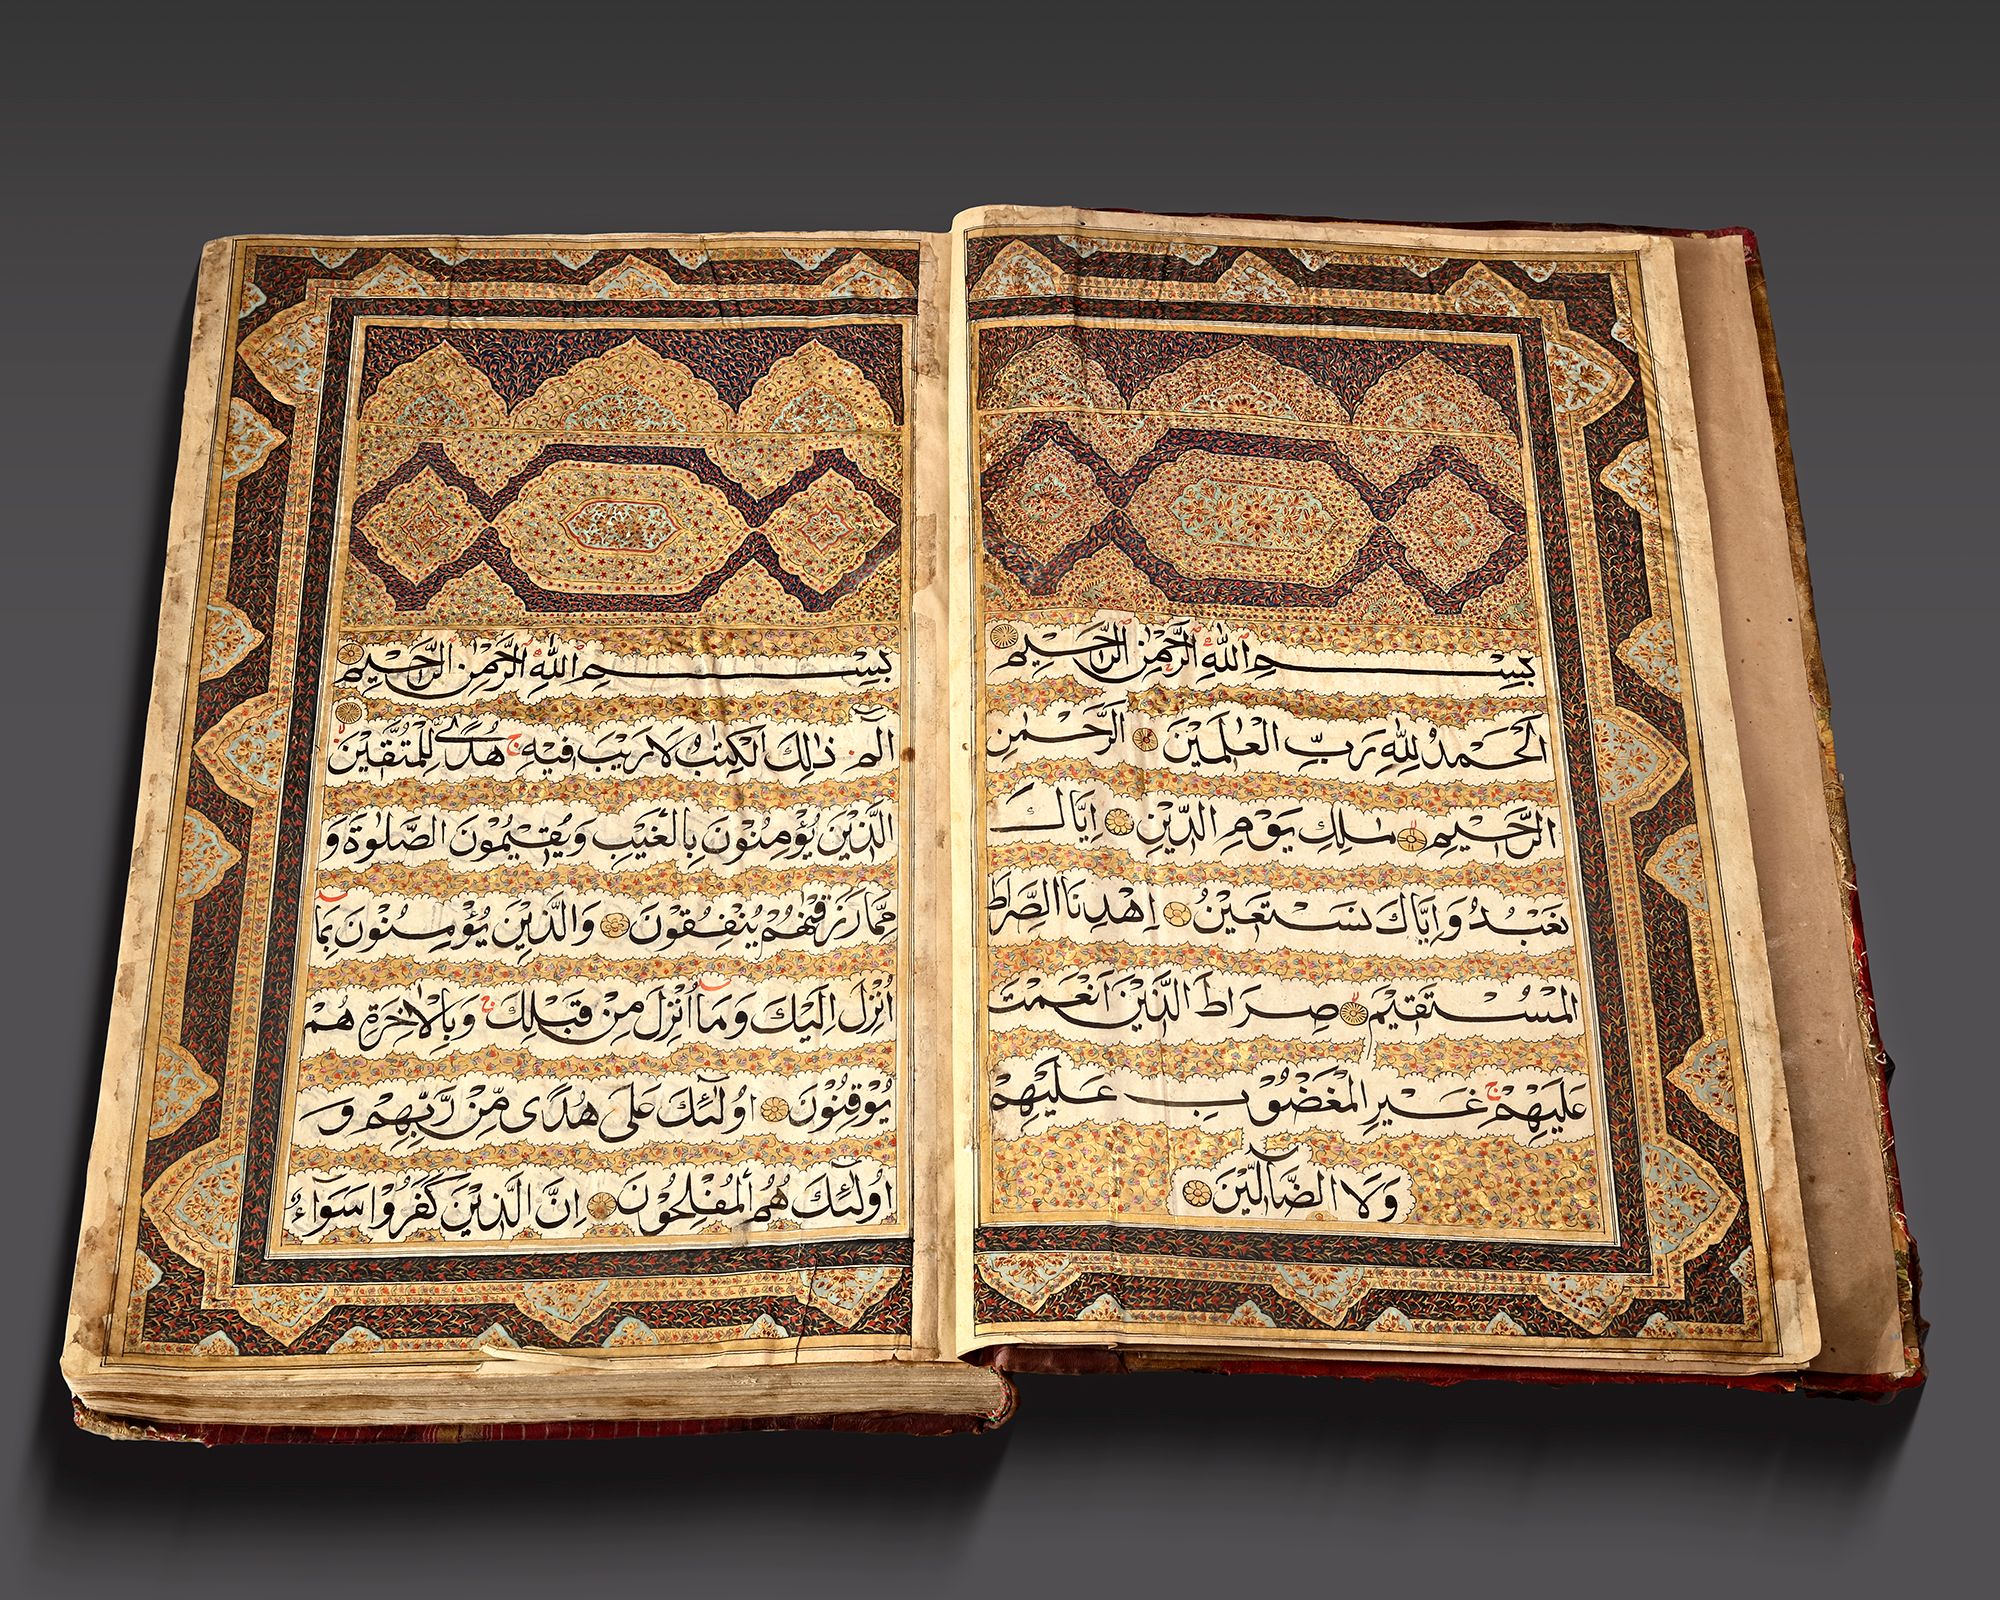 بِسْمِ اللّٰهِ الرَّحْمٰنِ الرَّحِيْمِ
اَلْحَمْدُ لِلّٰهِ رَبِّ الْعٰلَمِيْنَ الرَّحْمٰنِ
الرَّحِيْمِ مٰلِكِ يَوْمِ الدِّيْنِ اِيَّاكَ
نَعْبُدُ وَاِيَّاكَ نَسْتَعِيْنُ اِهْدِنَا الصِّرَاطَ
الْمُسْتَقِيْمَ صِرَاطَ الَّذِيْنَ اَنْعَمْتَ
عَلَيْهِمْ ج غَيْرِ الْمَغْضُوْبِ عَلَيْهِمْ
وَلَا الضَّآلِّيْنَ
بِسْمِ اللّٰهِ الرَّحْمٰنِ الرَّحِيْمِ
الٓمٓ ذٰلِكَ الْكِتٰبُ لَا رَيْبَ فِيْهِ ج هُدًى لِلْمُتَّقِيْنَ
الَّذِيْنَ يُؤْمِنُوْنَ بِالْغَيْبِ وَيُقِيْمُوْنَ الصَّلٰوةَ وَ
مِمَّا رَزَقْنٰهُمْ يُنْفِقُوْنَ وَالَّذِيْنَ يُؤْمِنُوْنَ بِمَا
اُنْزِلَ اِلَيْكَ وَمَا اُنْزِلَ مِنْ قَبْلِكَ ج وَبِالْاٰخِرَةِ هُمْ
يُوْقِنُوْنَ اُولٰٓئِكَ عَلٰى هُدًى مِّنْ رَّبِّهِمْ وَ
اُولٰٓئِكَ هُمُ الْمُفْلِحُوْنَ اِنَّ الَّذِيْنَ كَفَرُوْا سَوَآءٌ